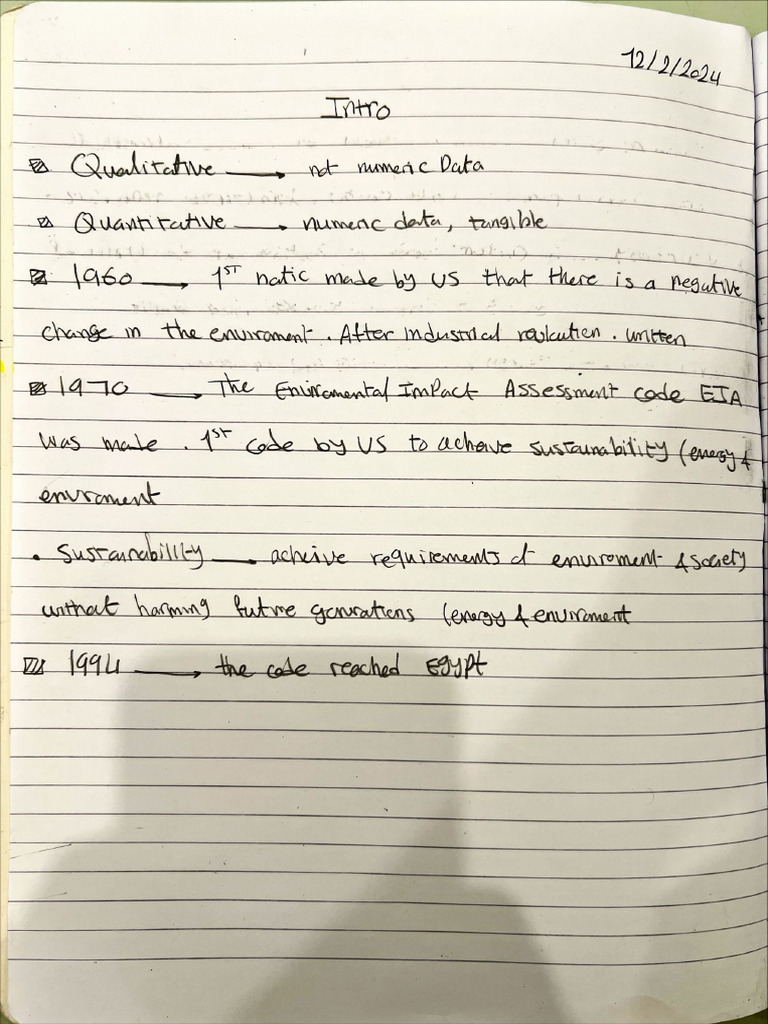 12/2/2024
Intro
Qualitative → not numeric Data
Quantitative → numeric data, tangible
1960 → 1ST notic made by US that there is a negative
change in the enviroment. After industrial revulcution. written
1970 → The Enivromental Impact Assessment code EIA
was made. 1ST code by US to acheive sustainability (energy &
enviroment
• Sustainability → acheive requirements of enviroment & society
without harming future generations (energy & enviroment
1994 → the code reached Egypt